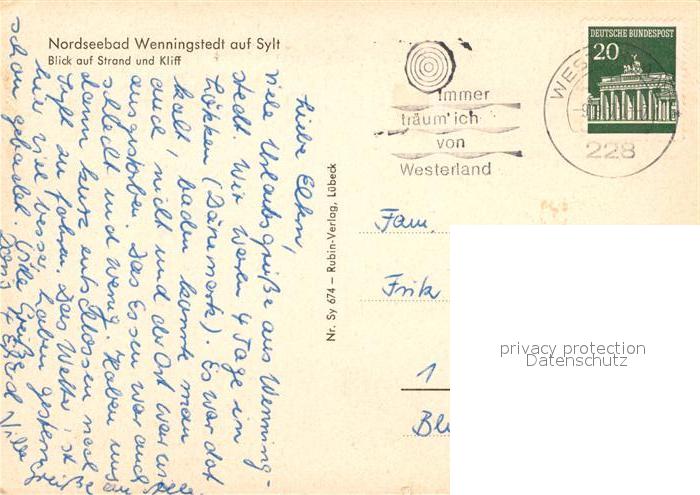 Nordseebad Wenningstedt auf Sylt
Blick auf Strand und Kliff
Liebe Eltern,
viele Urlaubsgrüße aus Wenning-
stedt. Wir waren 4 Tage in
Løkken (Dänemark). Es war dort
kalt, baden konnte man
auch nicht und der Ort war
ausgestorben. Das Essen war auch
schlecht und wenig. Haben uns
dann kurz entschlossen nach
Sylt zu fahren. Das Wetter ist
hier viel besser, haben gestern
schon gebadet. Viele Grüße
Nr. Sy 674 – Rubin-Verlag, Lübeck
Immer
träum' ich
von
Westerland
DEUTSCHE BUNDESPOST
20
WES
228
Fam.
Fritz
1
privacy protection
Datenschutz